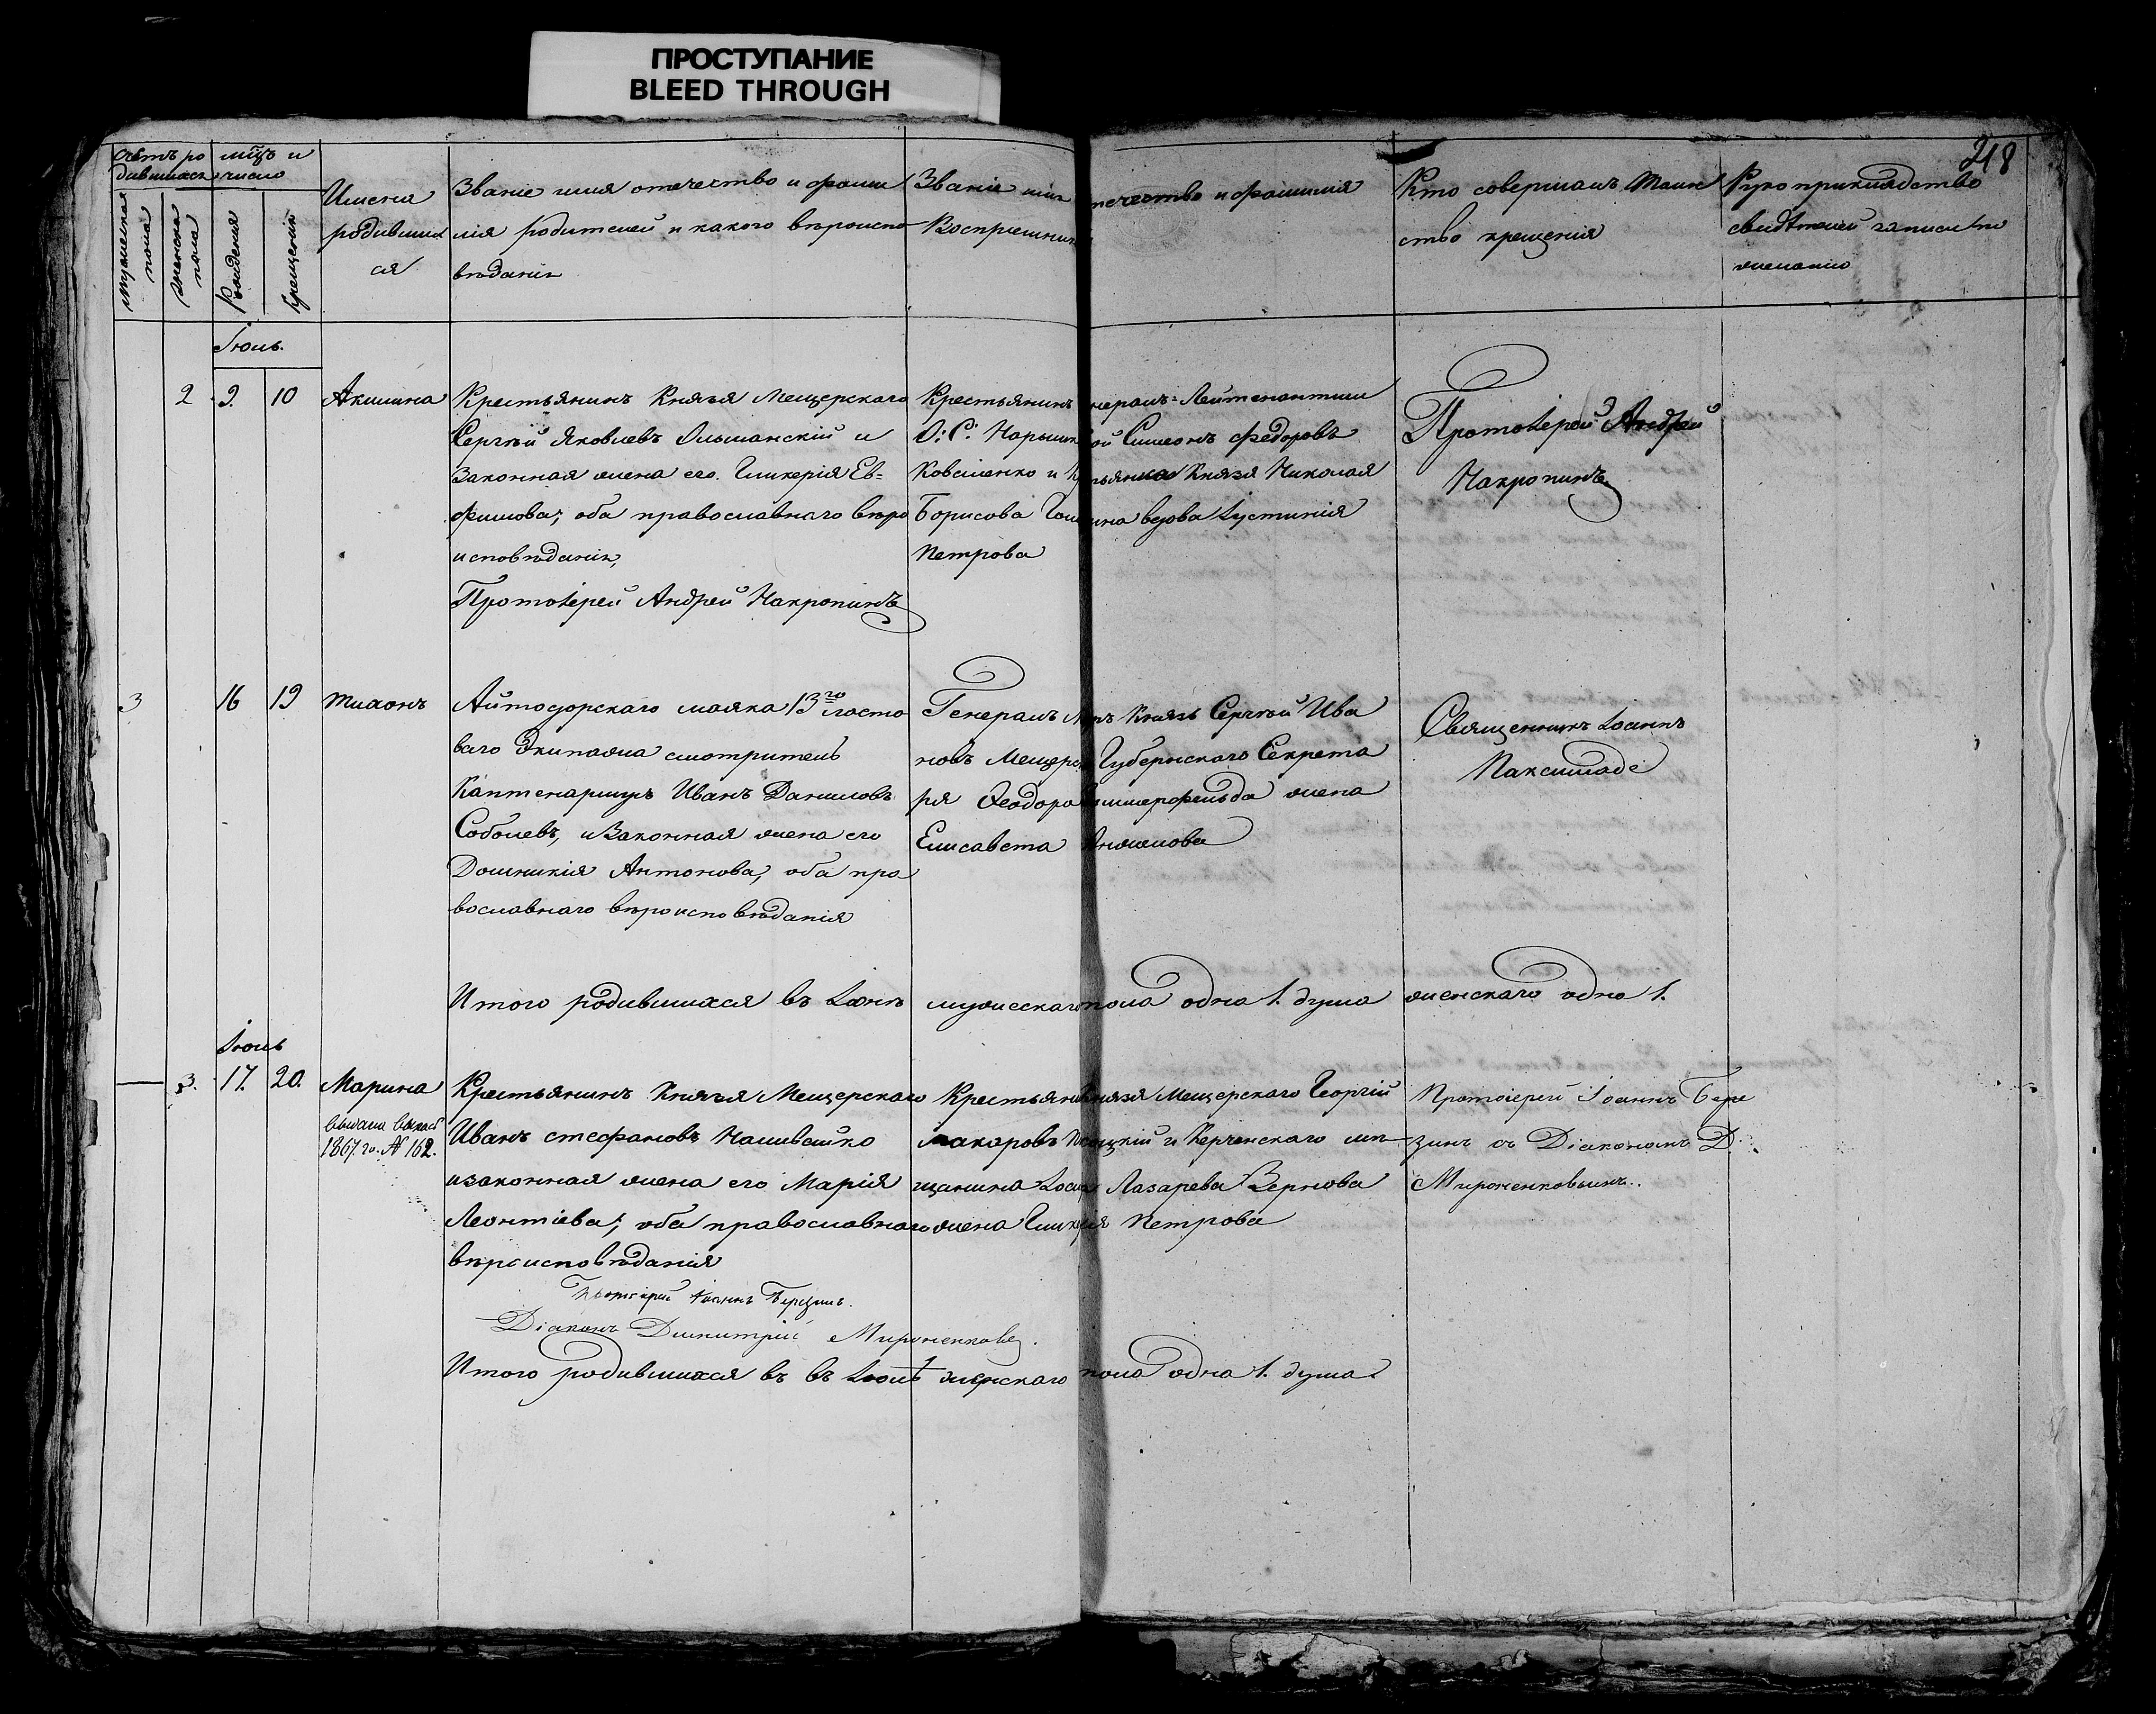 ПРОСТУПАНИЕ
BLEED THROUGH
218
Счетъ ро
дившихся
мсцъ и
число
мужеска
пола
женска
пола
Рожденія
Крещенія
Имена
родивших
ся
Званіе имя отечество и фами
лія родителей и какого вѣроиспо
вѣданія
Званіе имя отечество и фамилія
Воспріемник
Кто совершалъ таин
ство крещенія
Рукоприкладство
свидѣтелей записи по
желанію
2 9. 10 Акилина
Крестьянинъ Князя Мещерскаго
Сергѣй Яковлевъ Ольшанскій и
Законная жена его Гликерія Ев=
фимова; оба православнаго вѣро
исповѣданія,
Протоіерей Андрей Накропинъ
Крестьянинъ нералъ=Лейтенантши
О: С: Нарышк ой Симеонъ Федоровъ
Коваленко и Кр тьянка Князя Николая
Борисова Гол ина вдова Іустинія
Петрова
Протоіерей Андрей
Накропинъ
3 16 19 Тихонъ
Айтодорскаго маяка 13го ласто
ваго Экипажа смотритель
Каптенармусъ Иванъ Даниловъ
Соболевъ, и Законная жена его
Домникія Антонова, оба пра
вославнаго вѣроисповѣданія
Генералъ Князь Сергѣй Ива
новъ Мещерс Губернскаго Секрета
ря Феодора ммерфельда жена
Елисавета
Священникъ Іоаннъ
Паксимаде
Итого родившихся въ Іюнѣ мужескаго пола одна 1. душа женскаго одна 1.
Іюль
3. 17. 20. Марина
выдана
1867. го. № 162.
Крестьянинъ Князя Мещерскаго
Иванъ Стефановъ Наливайко
и законная жена его Марія
Леонтіева; оба православнаго
вѣроисповѣданія
Протоіерей Іоаннъ Березинъ.
Діаконъ Димитрій Мироненковъ.
Крестьян Князя Мещерскаго Георгій
Макаровъ цкій и Керченскаго мѣ
щанина Лазарева Вернова
жена Глик ія Петрова
Протоіерей Іоаннъ Бере
зинъ съ Діакономъ Д.
Мироненковымъ.
Итого родившихся въ въ Іюлѣ женскаго пола одна 1. душа.